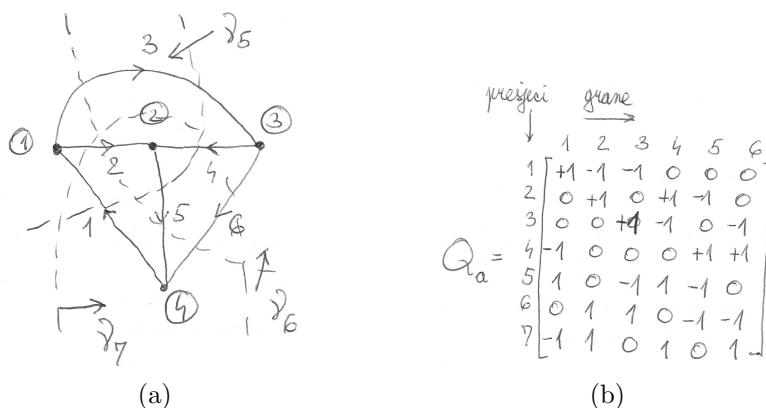 3
γ5
①
②
③
2
4
1
5
6
④
γ7
γ6
(a)
presjeci grane
1 2 3 4 5 6
1 +1 -1 -1 0 0 0
2 0 +1 0 +1 -1 0
3 0 0 +1 -1 0 -1
Qa = 4 -1 0 0 0 +1 +1
5 1 0 -1 1 -1 0
6 0 1 1 0 -1 -1
7 -1 1 0 1 0 1
(b)